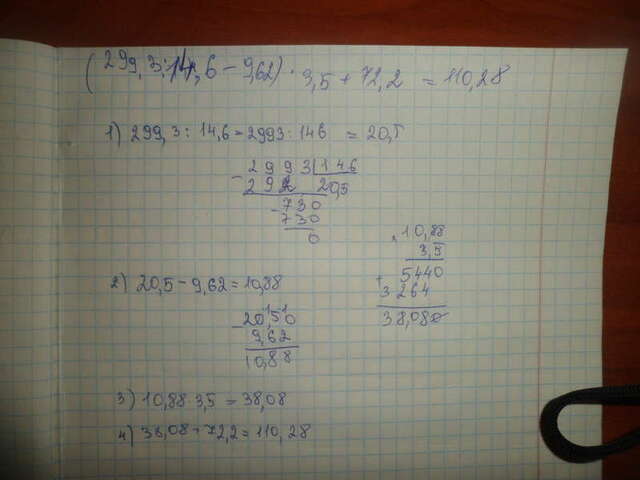 (299,3:14,6-9,62)·3,5+72,2=110,28
1) 299,3:14,6=2993:146=20,5
2993|146
-292 20,5
-730
730
0
2) 20,5-9,62=10,88
20,50
-9,62
10,88
×10,88
3,5
+5440
3264
38,080
3) 10,88·3,5=38,08
4) 38,08+72,2=110,28